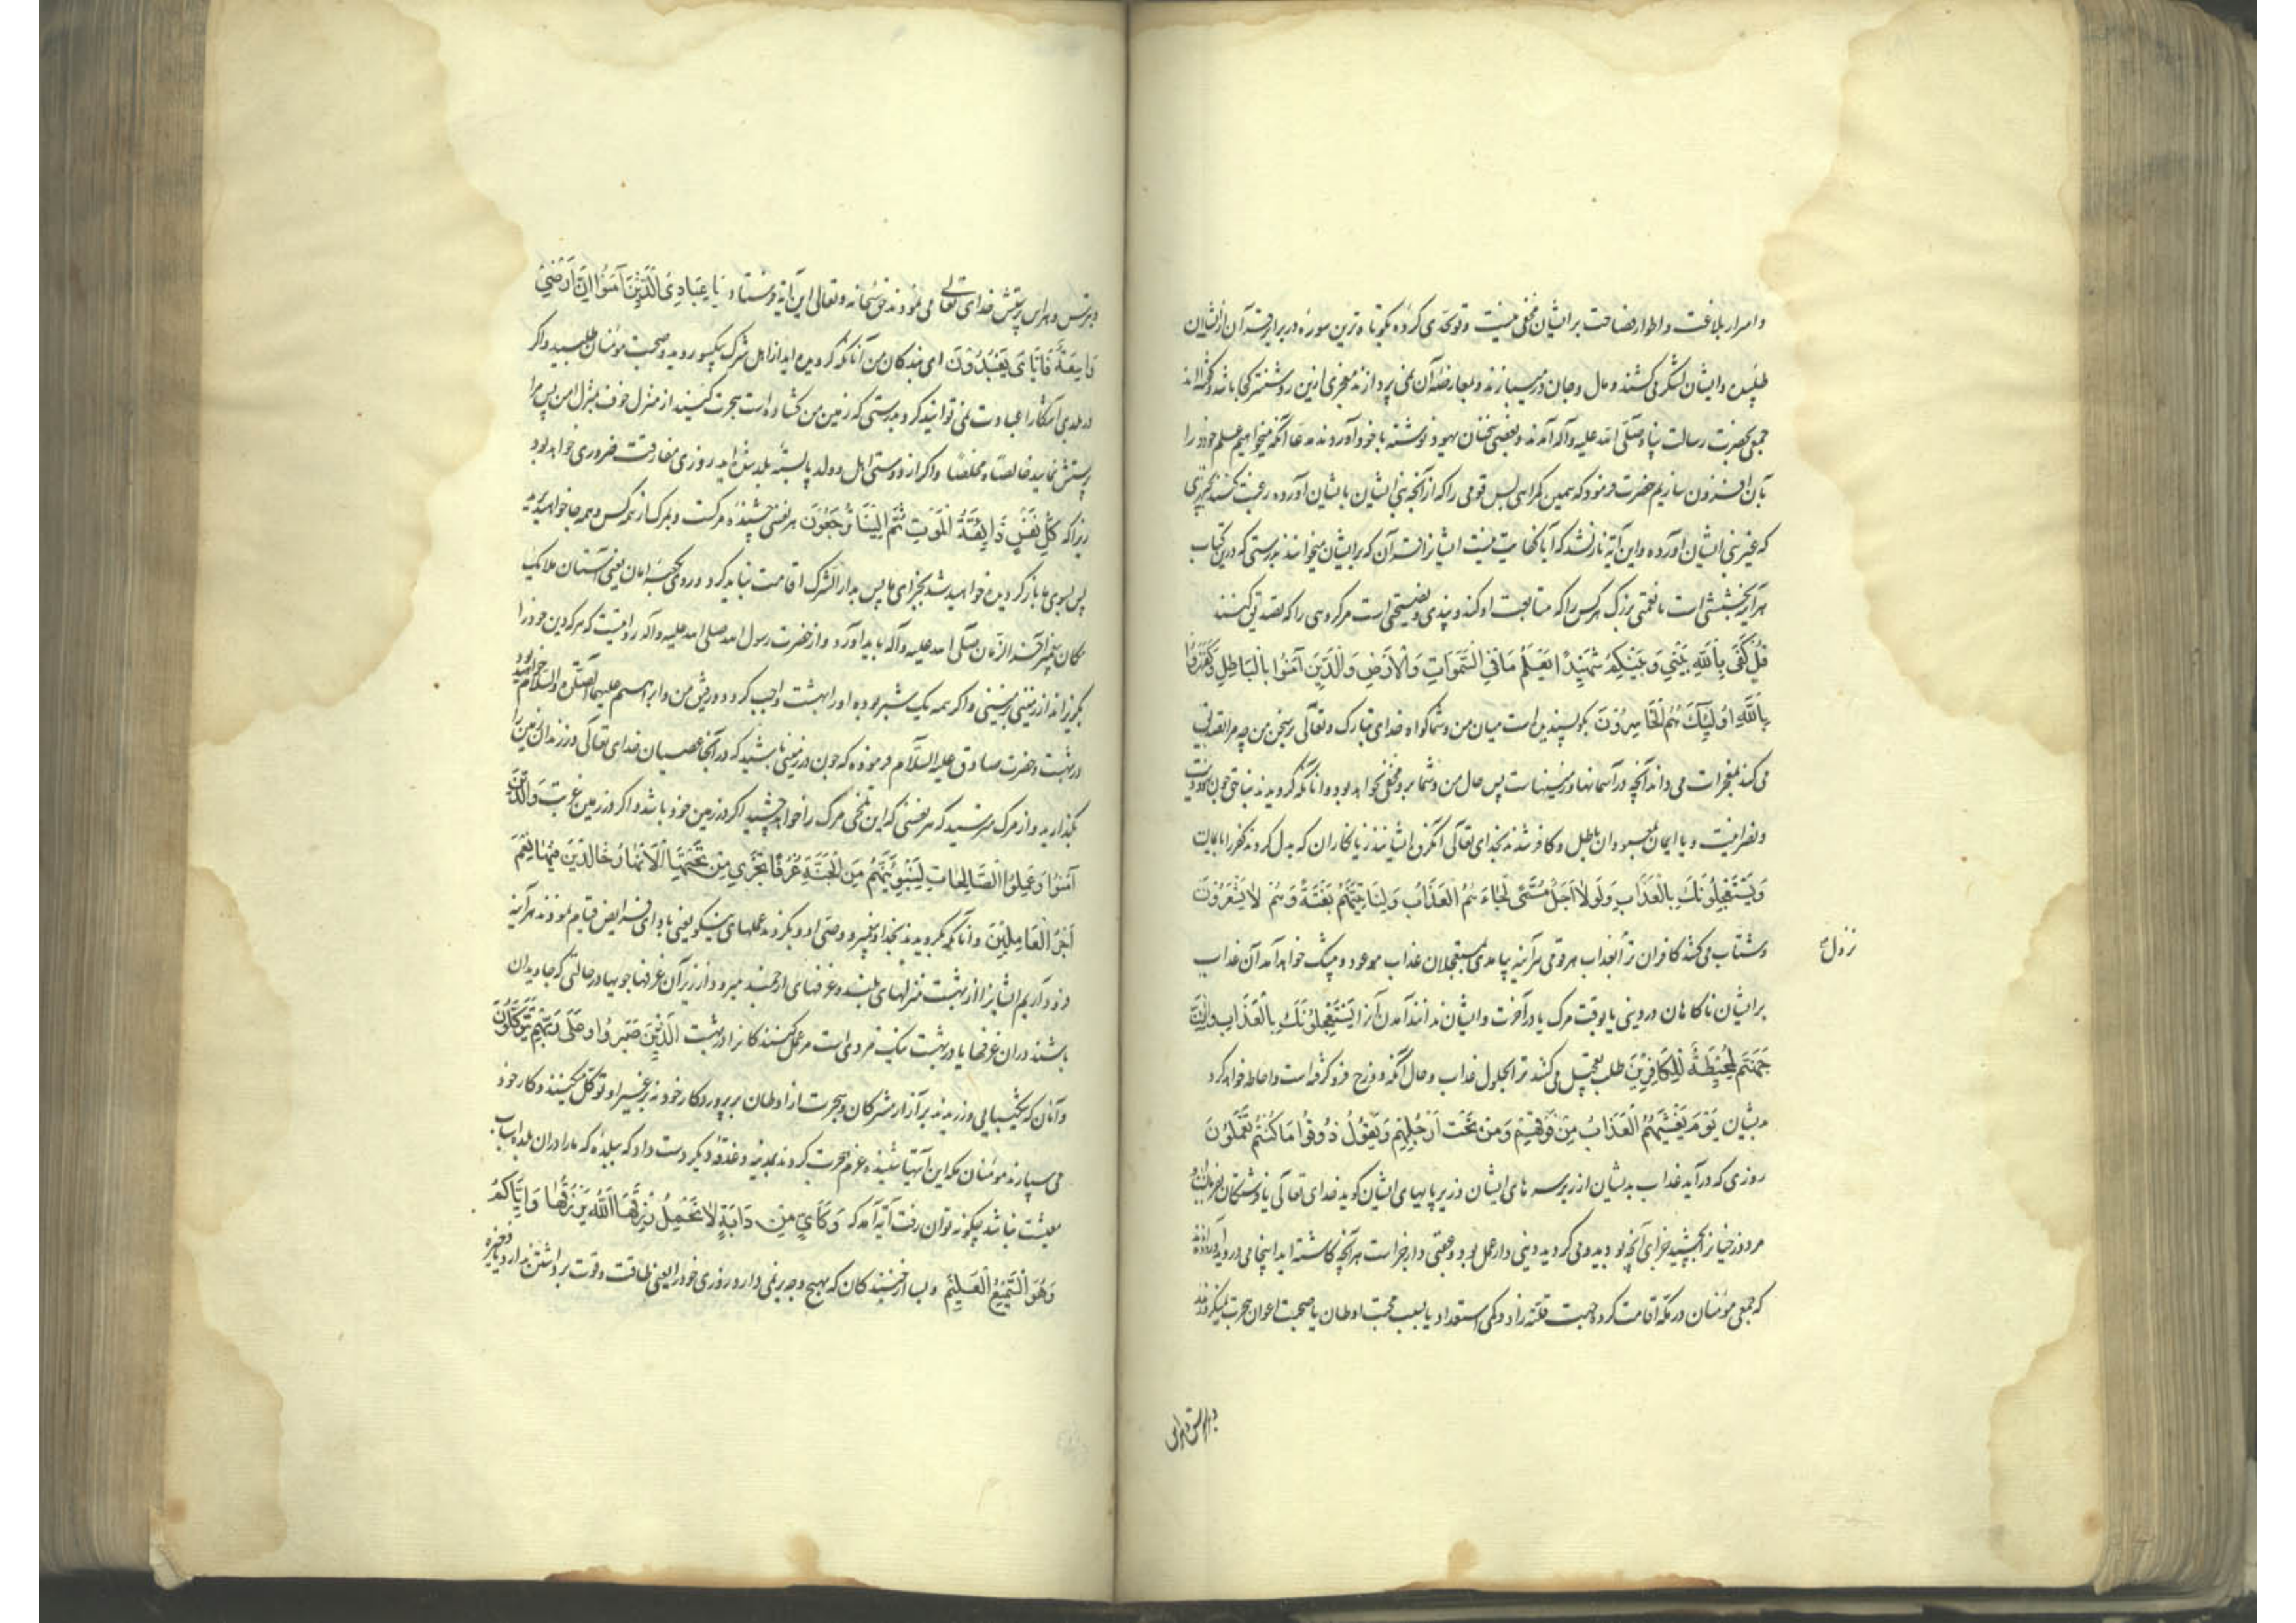 و اسرار بلاغت و اطوار فصاحت بر ایشان مخفی نیست و تو تحدی کرده بکوتاه ترین سورهٔ در برابر قرآن از ایشان
طلبیدی و ایشان لشکر می کشند و مال و جان در میبازند و بمعارضهٔ آن نمی پردازند معجزی ازین روشنتر کجا باشد
جمعی بحضرت رسالت پناه صلی الله علیه وآله آمدند و بعضی سخنان یهود نوشته با خود آوردند مدعا آنکه میخواهیم علم خود را
بآن افزون سازیم حضرت فرمود که همین کمراهی بس قومی را که از آنچه نبی ایشان بایشان آورده رغبت کنند بچیزی
که غیر نبی ایشان آورده و این آیه نازل شد که آیا کفایت نیست ایشانرا قرآن که بر ایشان میخوانند بدرستی که درین کتاب
هر آینه بخششی است یا نعمتی بزرک هر کس را که متابعت او کند و پندی و نصیحتی است مر کروهی را که تصدیق کنند
قُلْ كَفَى بِاللَّهِ بَيْنِي وَبَيْنَكُمْ شَهِيدًا يَعْلَمُ مَا فِي السَّمَوَاتِ وَالْأَرْضِ وَالَّذِينَ آمَنُوا بِالْبَاطِلِ وَكَفَرُوا
بِاللَّهِ أُولَئِكَ هُمُ الْخَاسِرُونَ بکو پسندیده است میان من و شما کواه خدای تبارک و تعالی بر سخن من چه مرا تصدیق
می کند بمعجزات می داند آنچه در آسمانها و زمینهاست پس حال من و شما برو مخفی نخواهد بود و آنانکه کرویدند
و نصرانیت و یا ایمان بمعبودان باطل و کافر شدند بخدای تعالی آنکروه ایشانند زیانکاران که بدل کردند کفر را بایمان
وَيَسْتَعْجِلُونَكَ بِالْعَذَابِ وَلَوْلَا أَجَلٌ مُسَمًّى لَجَاءَهُمُ الْعَذَابُ وَلَيَأْتِيَنَّهُمْ بَغْتَةً وَهُمْ لَا يَشْعُرُونَ
و شتاب می کنند کافران ترا بعذاب هر آینه بیامدی بمستعجلان عذاب موعود و بیشک خواهد آمد آن عذاب
نزول
بر ایشان ناکاهان در دینی یا بوقت مرک یا در آخرت و ایشان ندانند آمدن آنرا يَسْتَعْجِلُونَكَ بِالْعَذَابِ وَإِنَّ
جَهَنَّمَ لَمُحِيطَةٌ بِالْكَافِرِينَ طلب تعجیل می کنند ترا بحلول عذاب و حال آنکه دوزخ فرو کرفته است و احاطه خواهد کرد
بدیشان يَوْمَ يَغْشَيهُمُ الْعَذَابُ مِنْ فَوْقِهِمْ وَمِنْ تَحْتِ أَرْجُلِهِمْ وَيَقُولُ ذُوقُوا مَا كُنْتُمْ تَعْمَلُونَ
روزی که در آید عذاب بدیشان از زبر سرهای ایشان و زیر پایهای ایشان کوید خدای تعالی یا فرشتکان
مر دوزخیانرا بچشید جزای آنچه بودید و می کردید دینی دار عمل بود و عقبی دار جزاست هر آنچه کاشته اید اینجا می دروید
که جمعی مؤمنان در مکه اقامت کرده جهت قلت زاد و کمی استعداد یا بسبب محبت اوطان یا صحبت اعوان هجرت نمیکردند
و بترس و هراس پرستش خدای تعالی می نمودند حق سبحانه و تعالی این آیه فرستاد يَا عِبَادِيَ الَّذِينَ آمَنُوا إِنَّ أَرْضِي
وَاسِعَةٌ فَإِيَّايَ فَاعْبُدُونَ ای بندکان من آنانکه کرویده اید از اهل شرک یکسو روید و صحبت مؤمنان طلبید و اکر
در بلدی آشکارا عبادت نمی توانید کرد بدرستی که زمین من کشاده است هجرت کنید از منزل خوف بمنزل امن پس مرا
پرستش نمایید خالصا مخلصا و اکر از دوستی اهل و ولد پابستهٔ بلد شده اید روزی مفارقت ضروری خواهد بود
زیرا که كُلُّ نَفْسٍ ذَائِقَةُ الْمَوْتِ ثُمَّ إِلَيْنَا تُرْجَعُونَ هر نفسی چشنده مرکست و بمرک از همه کس و همه جا خواهید برید
پس بسوی ما باز کردیده خواهید شد بجزای ما پس بدار الشرک اقامت نباید کرد و روی بکعبه امان یعنی آستان ملائک
مکان پیغمبر آخر الزمان صلی الله علیه وآله باید آورد و از حضرت رسول الله صلی الله علیه وآله روایتست که هر که دین خود را
بکریزاند از زمینی بزمینی و اکر همه یک شبر بود او را بهشت واجب کردد و رفیق من و ابراهیم علیهما الصلوة والسلام خواهد بود
در بهشت و حضرت صادق علیه السلام فرموده که چون در زمینی باشید که در آنجا عصیان خدای تعالی ورزند آن زمین را
بکذارید و از مرک مترسید که هر نفسی که این تلخی مرک را خواهد چشید اکر در زمین خود باشد و اکر در زمین غربت وَالَّذِينَ
آمَنُوا وَعَمِلُوا الصَّالِحَاتِ لَنُبَوِّئَنَّهُمْ مِنَ الْجَنَّةِ غُرَفًا تَجْرِي مِنْ تَحْتِهَا الْأَنْهَارُ خَالِدِينَ فِيهَا نِعْمَ
أَجْرُ الْعَامِلِينَ و آنانکه بکرویدند بخدا و پیغمبر و وصی او و بکردند عملهای نیکو یعنی بادای فرایض قیام نمودند هر آینه
فرود آریم ایشانرا از بهشت منزلهای بلند و غرفهای ارجمند میرود از زیر آن غرفها جویها در حالتی که جاویدان
باشند در آن غرفها یا در بهشت نیک مزدی است مر عمل کنندکانرا در بهشت الَّذِينَ صَبَرُوا وَعَلَى رَبِّهِمْ يَتَوَكَّلُونَ
و آنان که شکیبایی ورزیدند بر آزار مشرکان و هجرت از اوطان بر پروردکار خود نه بر غیر او توکل میکنند و کار خود
می سپارند مؤمنان مکه این آیتها شنیده عزم هجرت کردند بمدینه و دغدغهٔ دیکر دست داد که ببلدهٔ که ما را در آن بلد اسباب
معیشت نباشد چکونه توان رفت آیه آمد که وَكَأَيِّنْ مِنْ دَابَّةٍ لَا تَحْمِلُ رِزْقَهَا اللَّهُ يَرْزُقُهَا وَإِيَّاكُمْ
وَهُوَ السَّمِيعُ الْعَلِيمُ و بسا از جنبندکان که بهیچ وجه بر نمی دارد روزی خود را یعنی طاقت و قوت برداشتن ندارد یا ذخیره